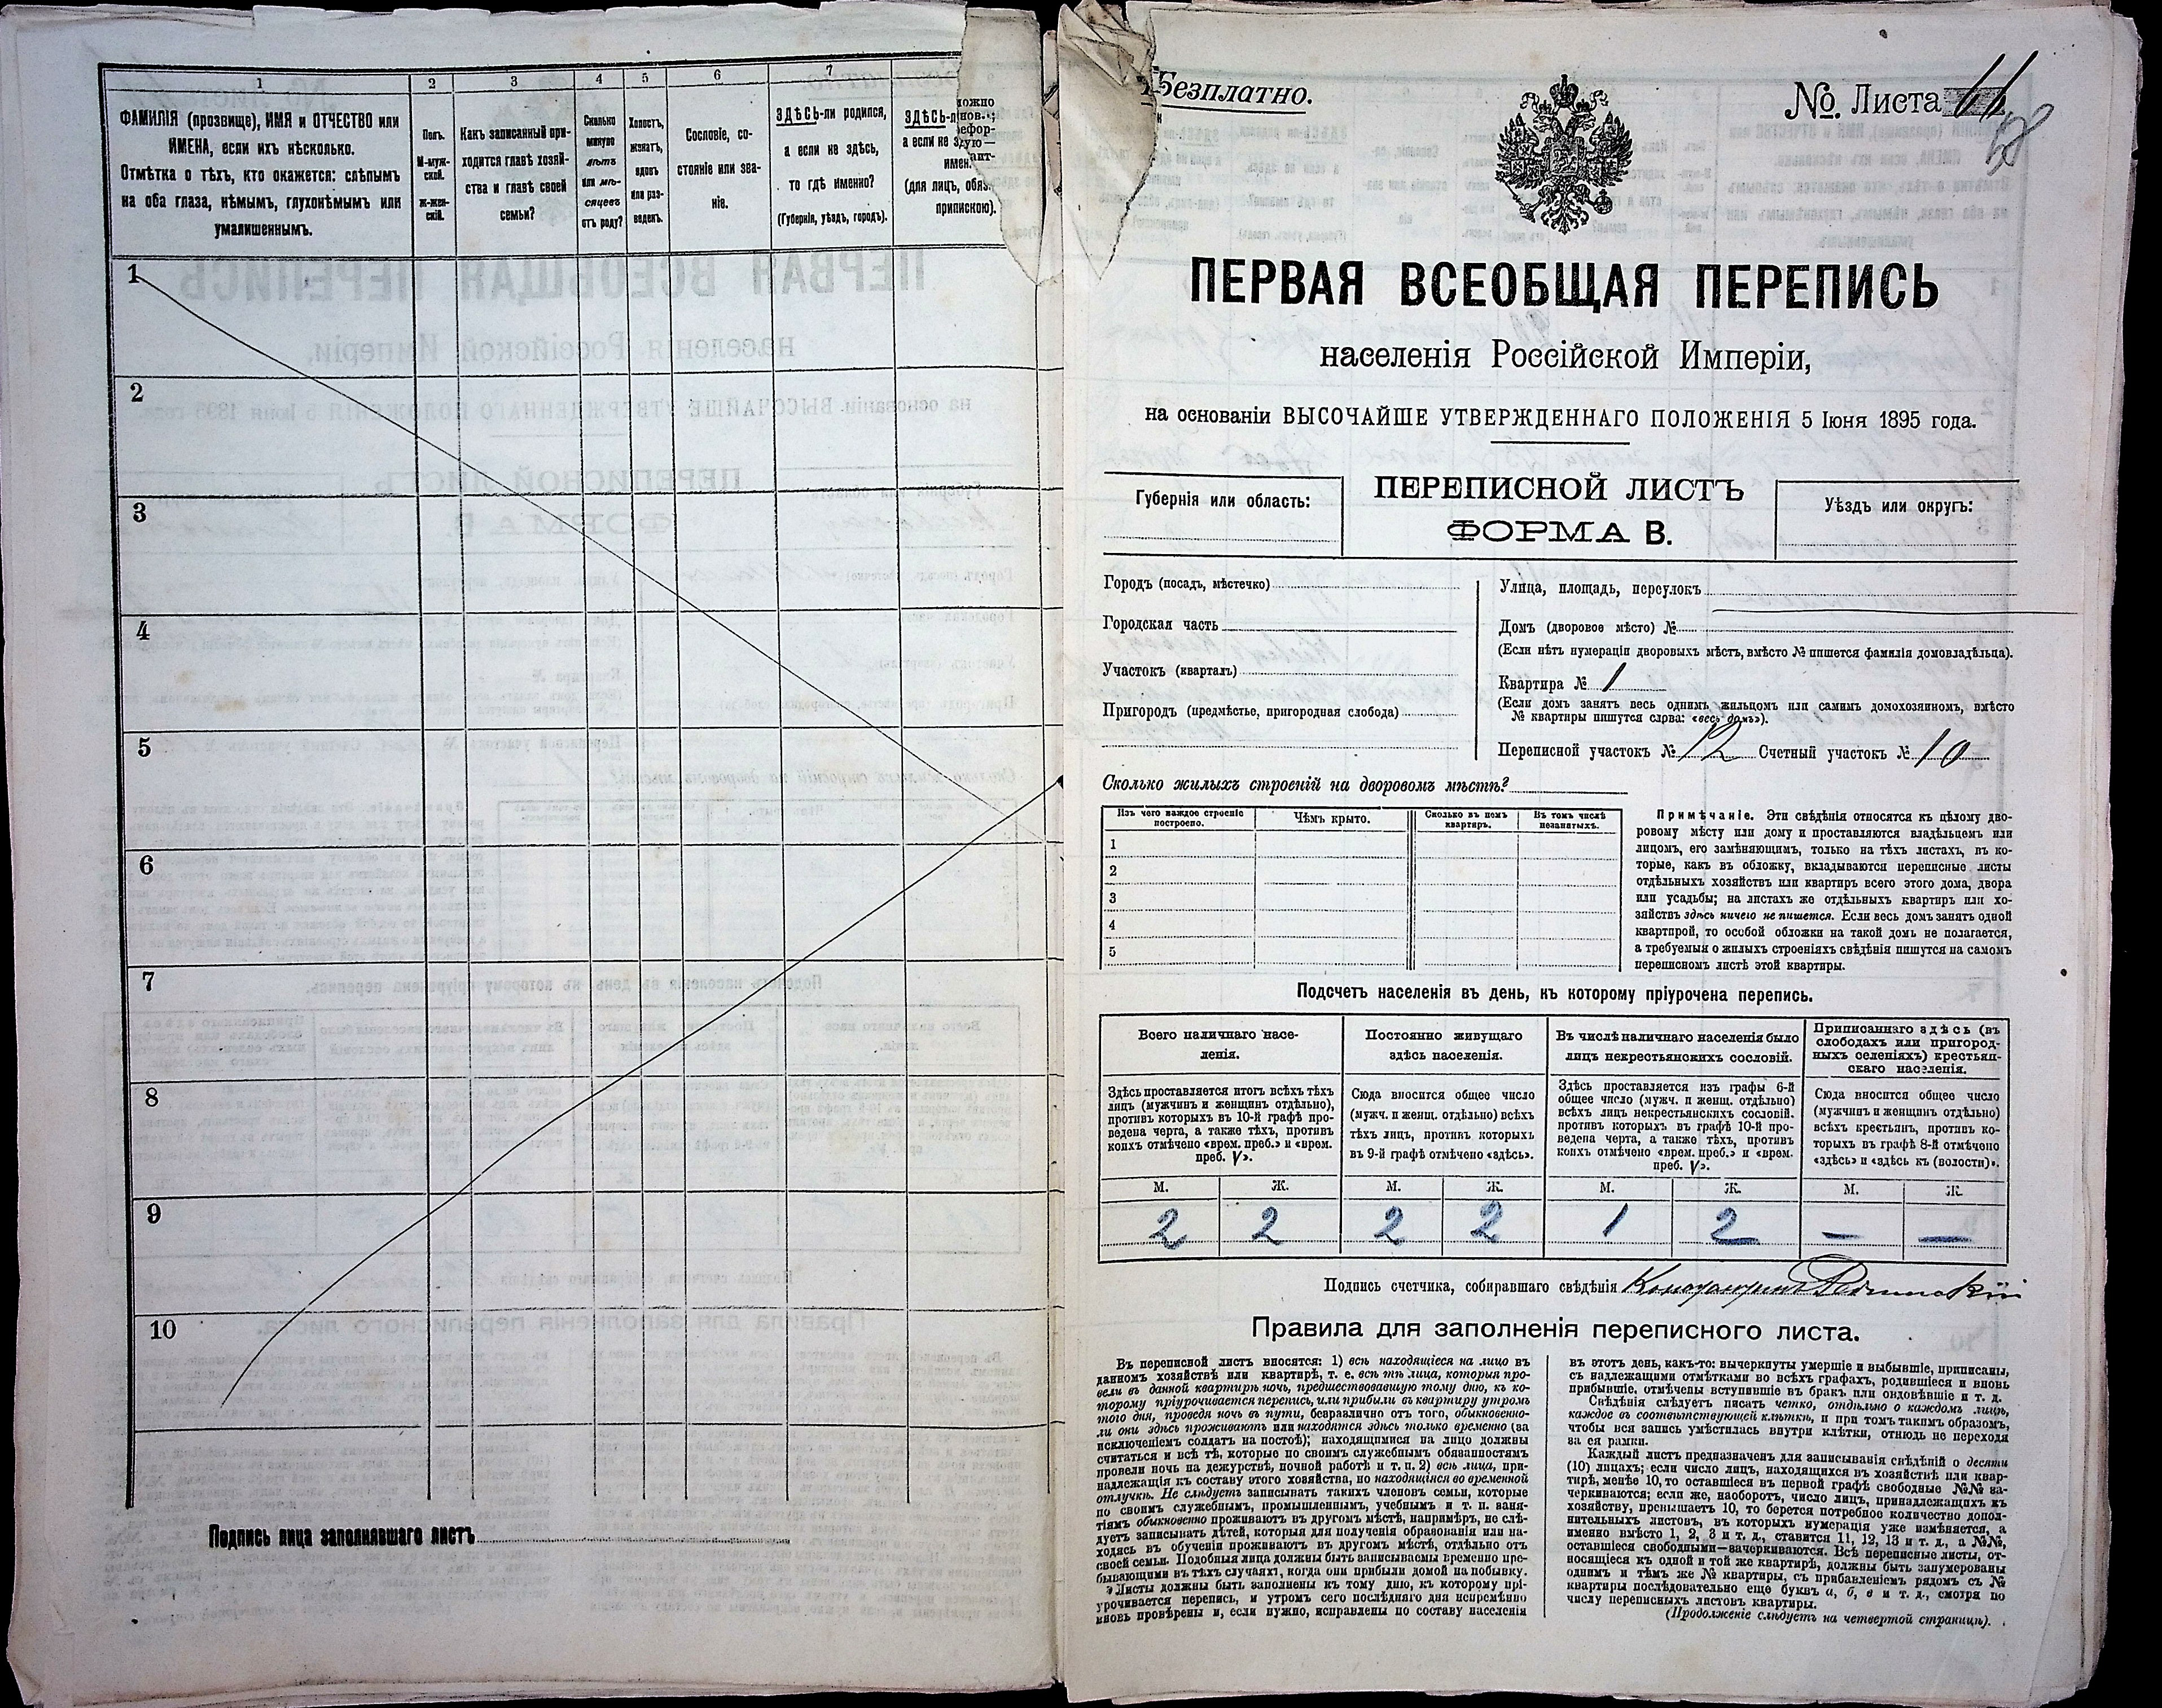 1
2
3
4
5
6
7
ФАМИЛІЯ (прозвище), ИМЯ и ОТЧЕСТВО или
ИМЕНА, если ихъ нѣсколько.
Отмѣтка о тѣхъ, кто окажется: слѣпымъ
на оба глаза, нѣмымъ, глухонѣмымъ или
умалишеннымъ.
Полъ.
М-муж-
ской.
Ж-жен-
скій.
Какъ записанный при-
ходится главѣ хозяй-
ства и главѣ своей
семьи?
Сколько
минуло
лѣтъ
или мѣ-
сяцевъ
отъ роду?
Холостъ,
женатъ,
вдовъ
или раз-
веденъ.
Сословіе, со-
стояніе или зва-
ніе.
ЗДѢСЬ-ли родился,
а если не здѣсь,
то гдѣ именно?
(Губернія, уѣздъ, городъ).
ЗДѢСЬ-л
а если не з
имен
(для лицъ, обяз
припискою).
1
2
3
4
5
6
7
8
9
10
Подпись лица заполнявшаго листъ
Безплатно.
№. Листа 11
18
ПЕРВАЯ ВСЕОБЩАЯ ПЕРЕПИСЬ
населенія Россійской Имперіи,
на основаніи ВЫСОЧАЙШЕ УТВЕРЖДЕННАГО ПОЛОЖЕНІЯ 5 Іюня 1895 года.
Губернія или область:
ПЕРЕПИСНОЙ ЛИСТЪ
ФОРМА В.
Уѣздъ или округъ:
Городъ (посадъ, мѣстечко)
Городская часть
Участокъ (кварталъ)
Пригородъ (предмѣстье, пригородная слобода)
Улица, площадь, переулокъ
Домъ (дворовое мѣсто) №
(Если нѣтъ нумераціи дворовыхъ мѣстъ, вмѣсто № пишется фамилія домовладѣльца).
Квартира № 1
(Если домъ занятъ весь однимъ жильцомъ или самимъ домохозяиномъ, вмѣсто
№ квартиры пишутся слова: «весь домъ»).
Переписной участокъ № 12 Счетный участокъ № 10
Сколько жилыхъ строеній на дворовомъ мѣстѣ?
Изъ чего каждое строеніе
построено.
Чѣмъ крыто.
Сколько въ немъ
квартиръ.
Въ томъ числѣ
незанятыхъ.
1
2
3
4
5
Примѣчаніе. Эти свѣдѣнія относятся къ цѣлому дво-
ровому мѣсту или дому и проставляются владѣльцемъ или
лицомъ, его замѣняющимъ, только на тѣхъ листахъ, въ ко-
торые, какъ въ обложку, вкладываются переписные листы
отдѣльныхъ хозяйствъ или квартиръ всего этого дома, двора
или усадьбы; на листахъ же отдѣльныхъ квартиръ или хо-
зяйствъ здѣсь ничего не пишется. Если весь домъ занятъ одной
квартирой, то особой обложки на такой домъ не полагается,
а требуемыя о жилыхъ строеніяхъ свѣдѣнія пишутся на самомъ
переписномъ листѣ этой квартиры.
Подсчетъ населенія въ день, къ которому пріурочена перепись.
Всего наличнаго насе-
ленія.
Постоянно живущаго
здѣсь населенія.
Въ числѣ наличнаго населенія было
лицъ некрестьянскихъ сословій.
Приписаннаго здѣсь (въ
слободахъ или пригород-
ныхъ селеніяхъ) крестьян-
скаго населенія.
Здѣсь проставляется итогъ всѣхъ тѣхъ
лицъ (мужчинъ и женщинъ отдѣльно),
противъ которыхъ въ 10-й графѣ про-
ведена черта, а также тѣхъ, противъ
коихъ отмѣчено «врем. преб.» и «врем.
преб. V».
Сюда вносится общее число
(мужч. и женщ. отдѣльно) всѣхъ
тѣхъ лицъ, противъ которыхъ
въ 9-й графѣ отмѣчено «здѣсь».
Здѣсь проставляется изъ графы 6-й
общее число (мужч. и женщ. отдѣльно)
всѣхъ лицъ некрестьянскихъ сословій.
противъ которыхъ въ графѣ 10-й про-
ведена черта, а также тѣхъ, противъ
коихъ отмѣчено «врем. преб.» и «врем.
преб. V».
Сюда вносится общее число
(мужчинъ и женщинъ отдѣльно)
всѣхъ крестьянъ, противъ ко-
торыхъ въ графѣ 8-й отмѣчено
«здѣсь» и «здѣсь къ (волости)».
М. Ж. М. Ж. М. Ж. М. Ж.
2 2 2 2 1 2 — —
Подпись счетчика, собиравшаго свѣдѣнія Константинъ
Правила для заполненія переписного листа.
Въ переписной листъ вносятся: 1) всѣ находящіеся на лицо въ
данномъ хозяйствѣ или квартирѣ, т. е. всѣ тѣ лица, которыя про-
вели въ данной квартирѣ ночь, предшествовавшую тому дню, къ ко-
торому пріурочивается перепись, или прибыли въ квартиру утромъ
того дня, проведя ночь въ пути, безразлично отъ того, обыкновенно-
ли они здѣсь проживаютъ или находятся здѣсь только временно (за
исключеніемъ солдатъ на постоѣ); находящимися на лицо должны
считаться и всѣ тѣ, которые по своимъ служебнымъ обязанностямъ
провели ночь на дежурствѣ, ночной работѣ и т. п. 2) всѣ лица, при-
надлежащія къ составу этого хозяйства, но находящіяся во временной
отлучкѣ. Не слѣдуетъ записывать такихъ членовъ семьи, которые
по своимъ служебнымъ, промышленнымъ, учебнымъ и т. п. заня-
тіямъ обыкновенно проживаютъ въ другомъ мѣстѣ, напримѣръ, не слѣ-
дуетъ записывать дѣтей, которыя для полученія образованія или на-
ходясь въ обученіи проживаютъ въ другомъ мѣстѣ, отдѣльно отъ
своей семьи. Подобныя лица должны быть записываемы временно пре-
бывающими въ тѣхъ случаяхъ, когда они прибыли домой на побывку.
Листы должны быть заполнены къ тому дню, къ которому прі-
урочивается перепись, и утромъ сего послѣдняго дня непремѣнно
вновь провѣрены и, если нужно, исправлены по составу населенія
въ этотъ день, какъ-то: вычеркнуты умершіе и выбывшіе, приписаны,
съ надлежащими отмѣтками во всѣхъ графахъ, родившіеся и вновь
прибывшіе, отмѣчены вступившіе въ бракъ или овдовѣвшіе и т. д.
Свѣдѣнія слѣдуетъ писать четко, отдѣльно о каждомъ лицѣ,
каждое въ соотвѣтствующей клѣткѣ, и при томъ такимъ образомъ,
чтобы вся запись умѣстилась внутри клѣтки, отнюдь не переходя
за ея рамки.
Каждый листъ предназначенъ для записыванія свѣдѣній о десяти
(10) лицахъ; если число лицъ, находящихся въ хозяйствѣ или квар-
тирѣ, менѣе 10, то оставшіеся въ первой графѣ свободные №№ за-
черкиваются; если же, наоборотъ, число лицъ, принадлежащихъ къ
хозяйству, превышаетъ 10, то берется потребное количество допол-
нительныхъ листовъ, въ которыхъ нумерація уже измѣняется, а
именно вмѣсто 1, 2, 3 и т. д., ставится 11, 12, 13 и т. д., а №№,
оставшіеся свободными—зачеркиваются. Всѣ переписные листы, от-
носящіеся къ одной и той же квартирѣ, должны быть занумерованы
однимъ и тѣмъ же № квартиры, съ прибавленіемъ рядомъ съ №
квартиры послѣдовательно еще буквъ а, б, в и т. д., смотря по
числу переписныхъ листовъ квартиры.
(Продолженіе слѣдуетъ на четвертой страницѣ).